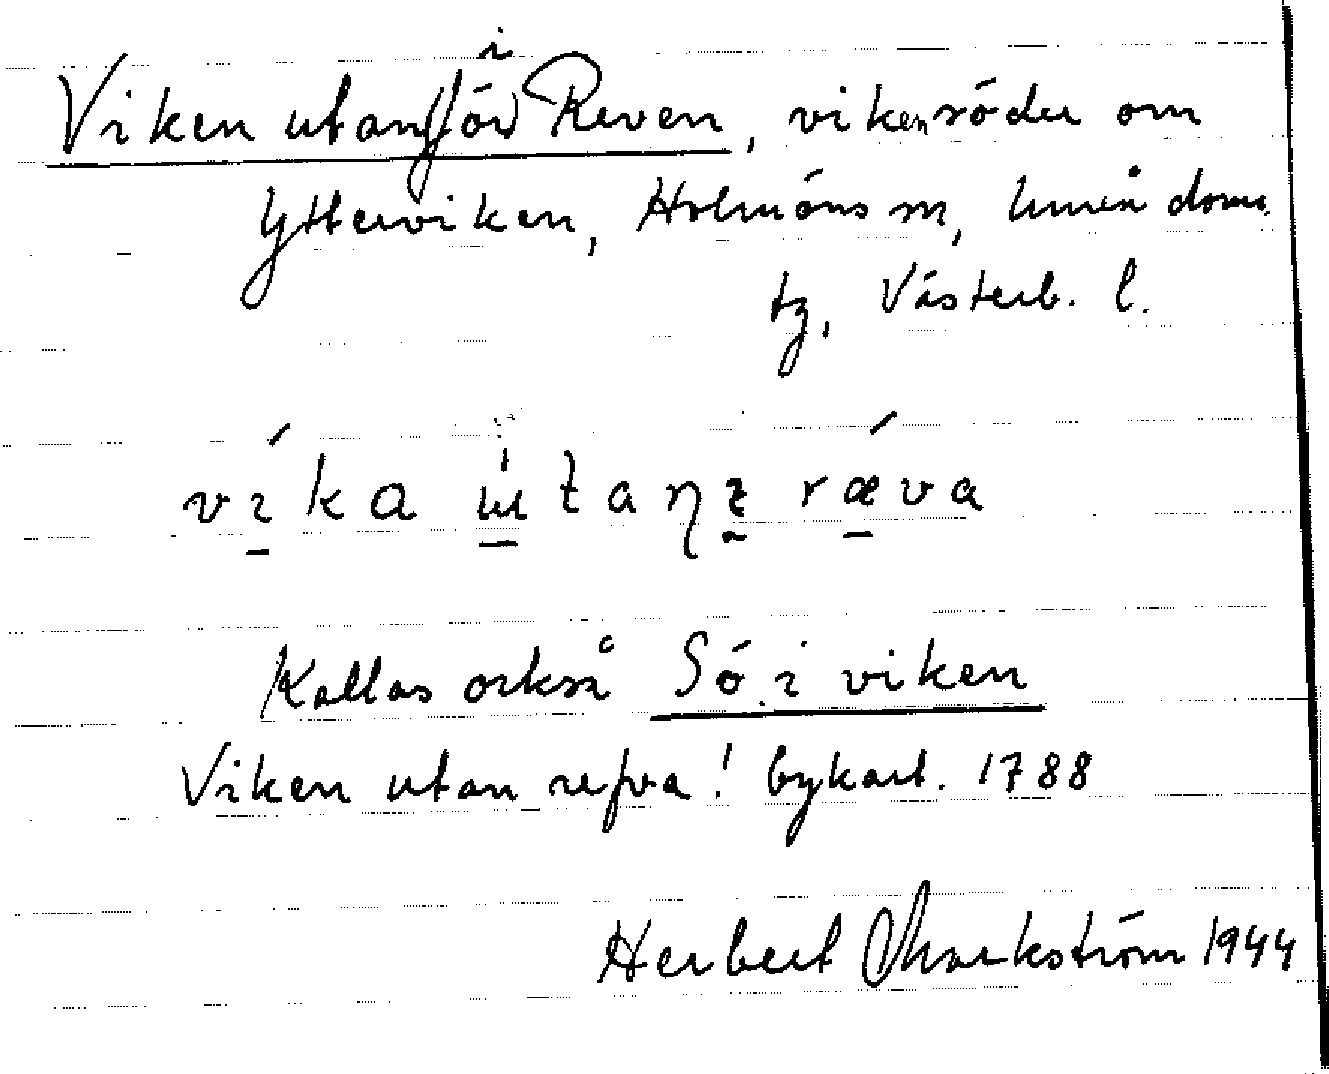 i
Viken utan(för) Reven, viken söder om
Ytterviken, Holmöns sn, Umeå doms.
tg, Västerb. l.
vika útaŋz ræva
Kallas också Sö i viken
Viken utan refva! bykart. 1788
Herbert Markström 1944